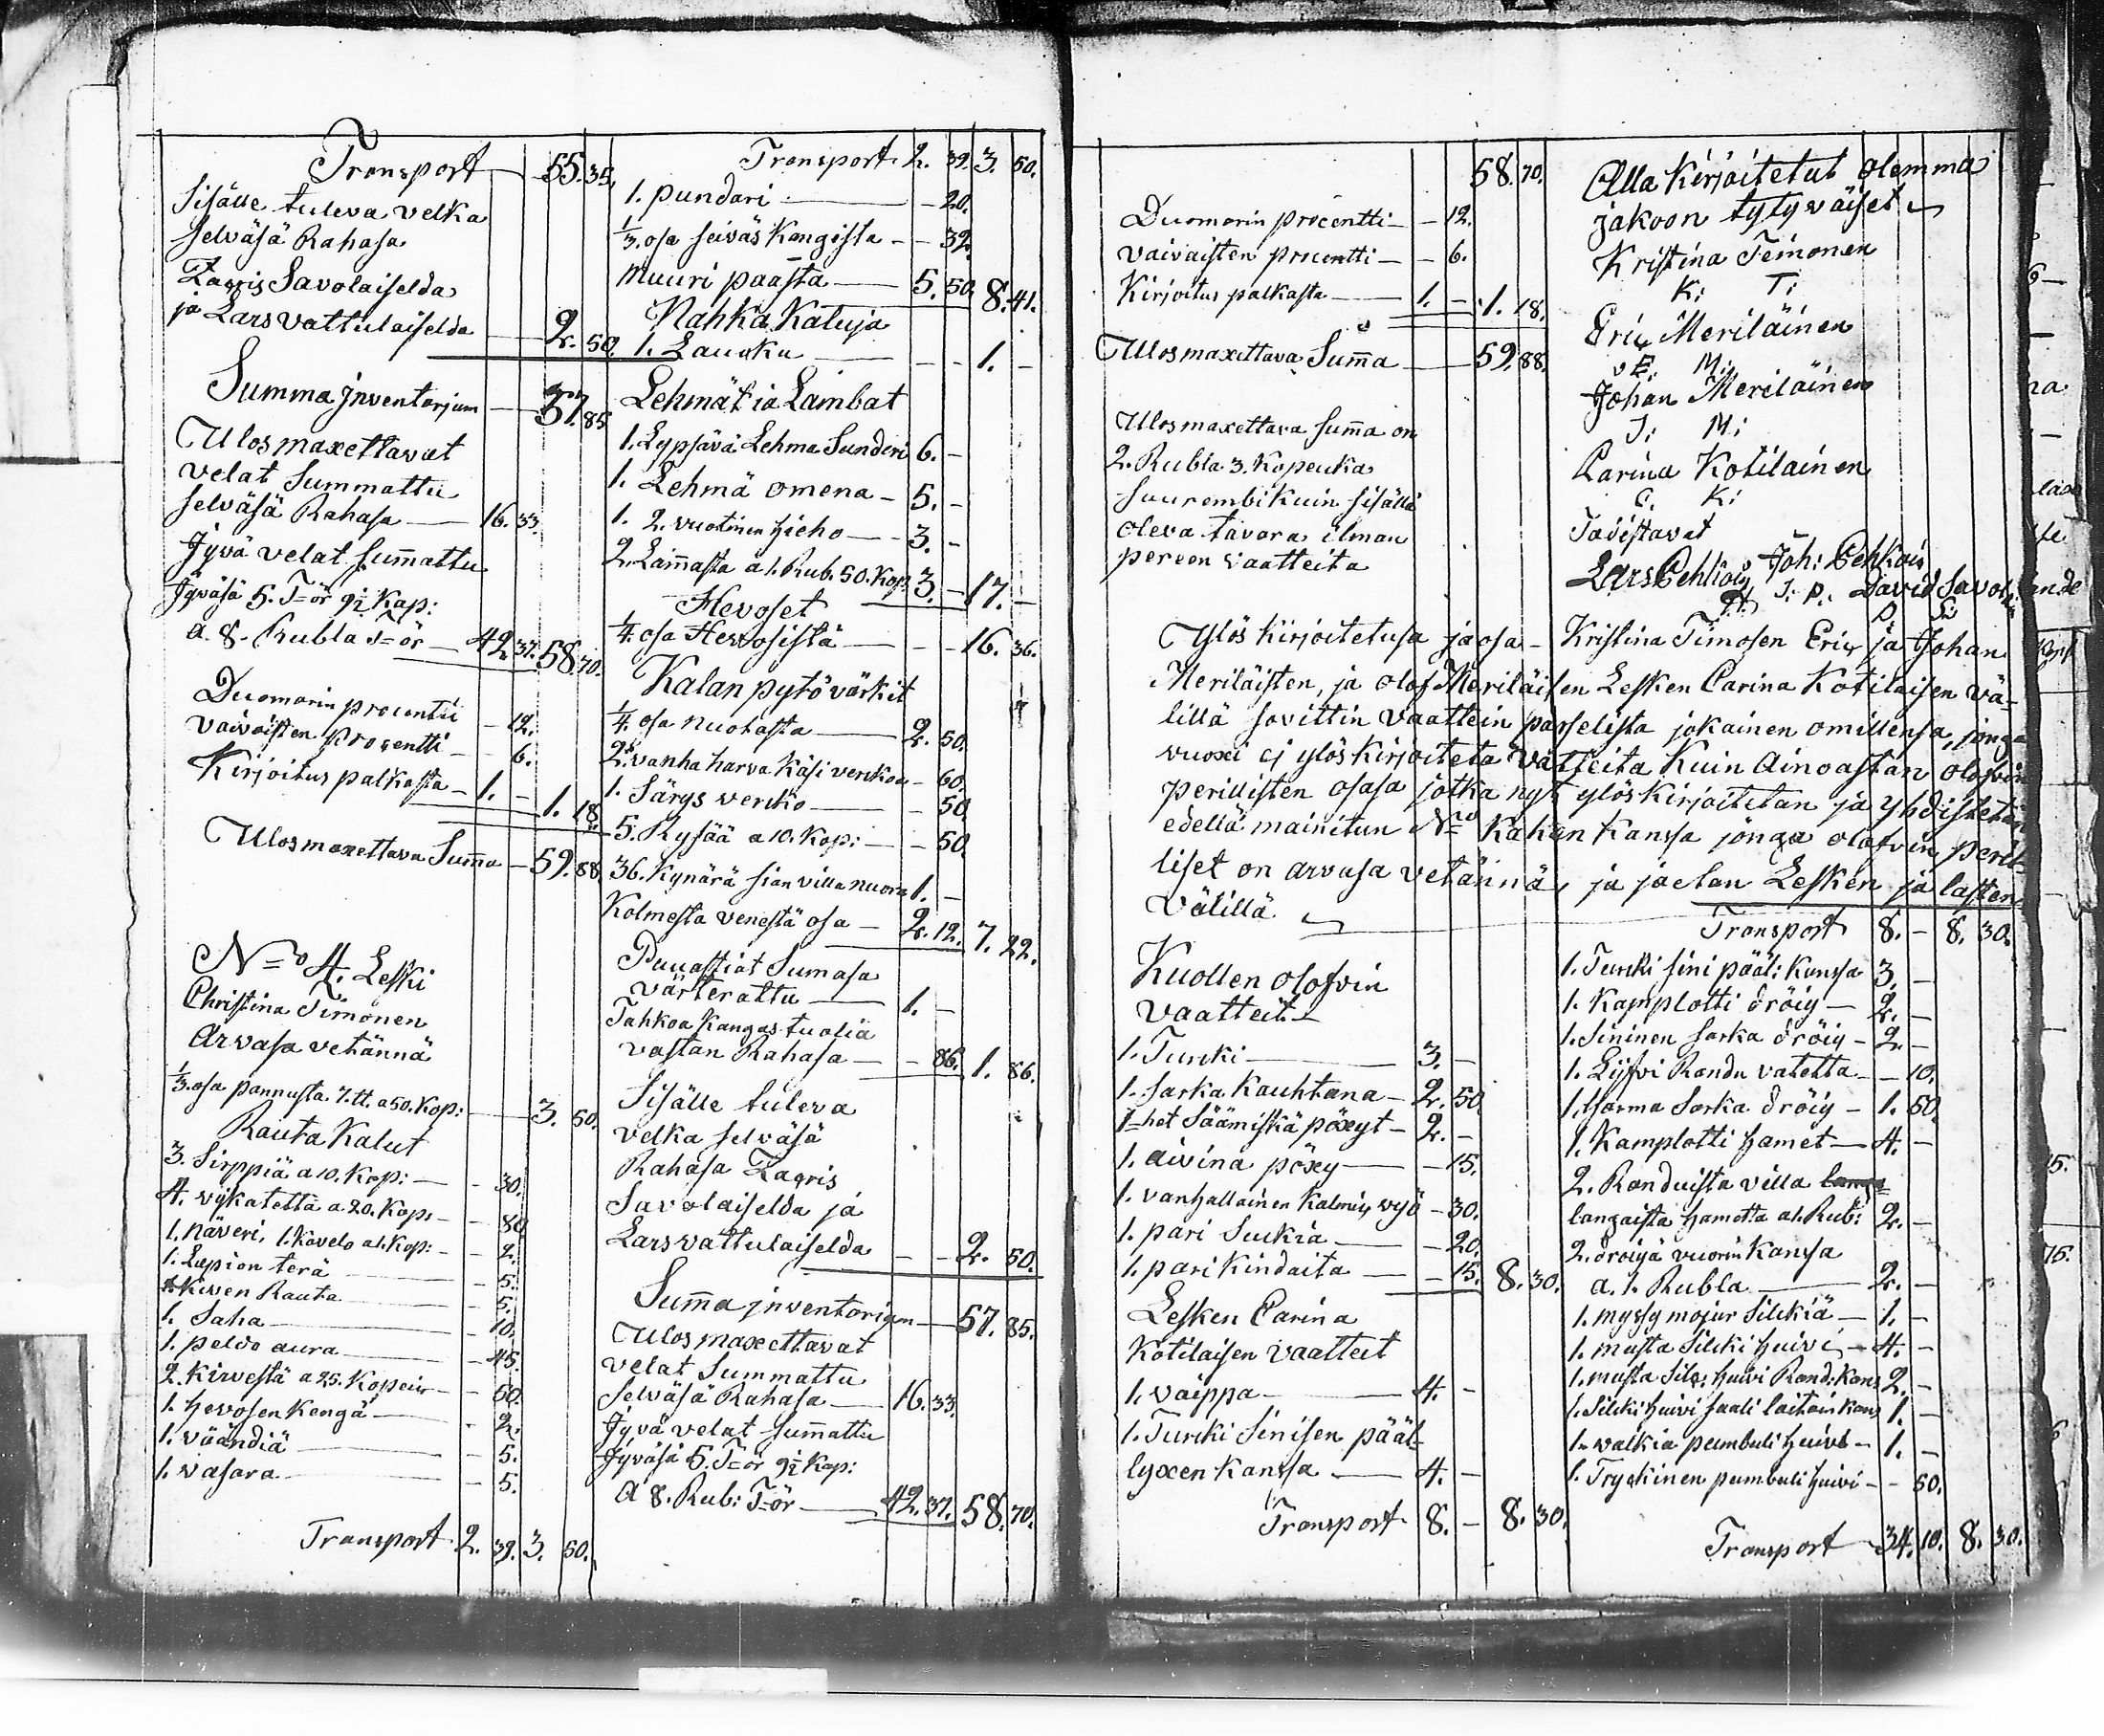 Transport — 55. 35.
Sisälle tuleva velka
selwäsä Rahasa
Zagris Savolaiselda
ja Lars vattulaiselda — 2. 50.
Summa jnventarjum — 57. 85
Ulosmaxettawat
velat Summattu
selwäsä Rahasa — 16. 33.
Jywä velat sum̃attu
Jywäsä 5. T=ör 9½ Kap:
a. 8. Rubla T=ör — 42. 37. 58. 70.
Duomarin procentti — 12.
Vaivaisten procentti — 6.
Kirjoitus palkasta — 1. — 1. 18.
Ulosmaxettava Sum̃a — 59. 88.
N=o 4. Leski
Christina Timonen
Arvasa vetännä
⅓. osa pannusta. 7. tt. a 50. Kop: — 3. 50.
Rauta Kalut
3. Sirppiä a 10. Kop: — 30.
4. wijkatetta a 20. Kop: — 80
1. Näveri, 1. Kavelo a 1. Kop: — 2.
1. Lapion terä — 5.
1. Kiven Rauta — 5.
1. Saha — 10.
1. peldo aura — 45.
2. Kirvestä a 25. Kopeik — 50.
1. hevosen Kengä — 2.
1. väändiä — 5.
1. vasara — 5.
Transport 2. 39. 3. 50.
Transport. 2. 39. 3. 50.
1. pundari — 20.
⅓. osa seiväs Kangista — 32.
muuri paasta — 5. 50. 8. 41.
Nahka Kaluja
1. Laukku — 1. —
Lehmät ja Lambat
1. Lypsävä Lehma Sunderi 6. —
1. Lehmä omena — 5. —
1. 2. vuotinen hieho — 3. —
2. Lam̃asta a 1. Rub. 50. Kop: 3. — 17. —
Hevoset
¼ osa Hevosista — 16. 36.
Kalan pytö värkit
¼ osa nuotasta — 2. 50.
2. vanha harva Käsi verkkoa — 60.
1. Särgs verkko — 50.
5. Rysää a 10. Kop: — 50.
36. Kynärä sian villa nuora 1. —
Kolmesta venestä osa — 2. 12. 7. 22.
Puuastiat Sumasa
värterattu — 1. —
Tahkoa Kangas tuolia
vastan Rahasa — 86. 1. 86.
Sisälle tuleva
velka selväsä
Rahasa Zagris
Savolaiselda ja
Lars vattulaiselda — 2. 50.
Sum̃a jnventarium — 57. 85.
Ulosmaxettawat
velat Summattu
Selväsä Rahasa — 16. 33.
Jyvä velat sum̃attu
Jyväsä 5. T=ör 9½ Kap:
a 8. Rub: T=ör — 42. 37. 58. 70.
58. 70.
Duomarin procentti — 12.
Vaivaisten procentti — 6.
Kirjoitus palkasta — 1. — 1. 18.
Ulosmaxettava Sum̃a — 59. 88.
Ulosmaxettava sum̃a on
2. Rubla 3. Kopeikka
suurembi kuin sisällä
oleva tavara ilman
pereen vaatteita
Alla kirjoitetut olemma
jakoon tytywäiset
Kristina Teimonen
K: T:
Eric Meriläinen
E: M:
Johan Meriläinen
J: M:
Carina Kotilainen
C. K:
Todistavat
Joh: Pehkoin
Lars Pehkoin J: P: David Savolain
Ylös kirjoitetusa jaosa – Kristina Timosen Eric ja Johan
Meriläisten, ja olof Meriläisen Lesken Carina Kotilaisen vä-
lillä sovittin vaattein parselista jokainen omillensa, jonga
vuoxi ej ylöskirjoiteta vatteita Kuin Ainoastan olofvin
perillisten osasa jotka nyt ylöskirjoitetan ja yhdistetän
edellä mainitun N=o Kahen Kanssa jonga olofvin peril-
liset on arvasa vetännä, ja jaetan Lesken ja lasten
välillä
Kuollen olofvin
vaatteit
1. Turcki — 3. —
1. Sarka Kauhtana — 2. 50
1=het Säämiskä pöxyt — 2. —
1. aivina pöxy — 15.
1. vanhallainen Kalmig wyö — 30.
1. pari Sukkia — 20.
1. pari Kindaita — 15. 8. 30.
Lesken Carina
Kotilaisen vaatteit
1. vaippa — 4. —
1. Turcki Sinisen pääl-
lyxen Kanssa — 4. —
Transport 8. — 8. 30.
Transport 8. — 8. 30.
1. Turcki sini pääl: Kanssa 3. —
1. Kamplotti dröig — 2. —
1. Sininen sarka dröig — 2. —
1. Lijfvi Randu vatetta — 10.
1. harma Sarka dröig — 1. 50.
1. Kamplotti hamet — 4. —
2. Randuista villa
langaista hametta a 1. Rub: 2. —
2. dröigä vuorin Kanssa
a. 1. Rubla — 2. —
1. myssy mojur Silckiä — 1. —
1. musta Silcki huivi — 4. —
1. musta Silc: huivi Rand: Kans 2. —
1. Silcki huivi saali laitain Kans 1. —
1. walkia pumbuli huivi — 1. —
1. Tryckinen pumbuli huivi — 50.
Transport — 34. 10. 8. 30.